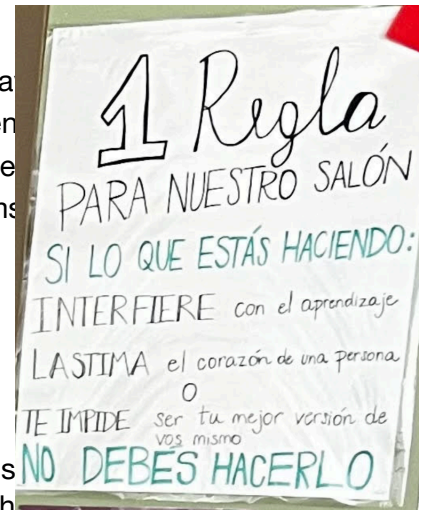 1 Regla
PARA NUESTRO SALÓN
SI LO QUE ESTÁS HACIENDO:
INTERFIERE con el aprendizaje
LASTIMA el corazón de una persona
O
TE IMPIDE ser tu mejor versión de
vos mismo
NO DEBES HACERLO